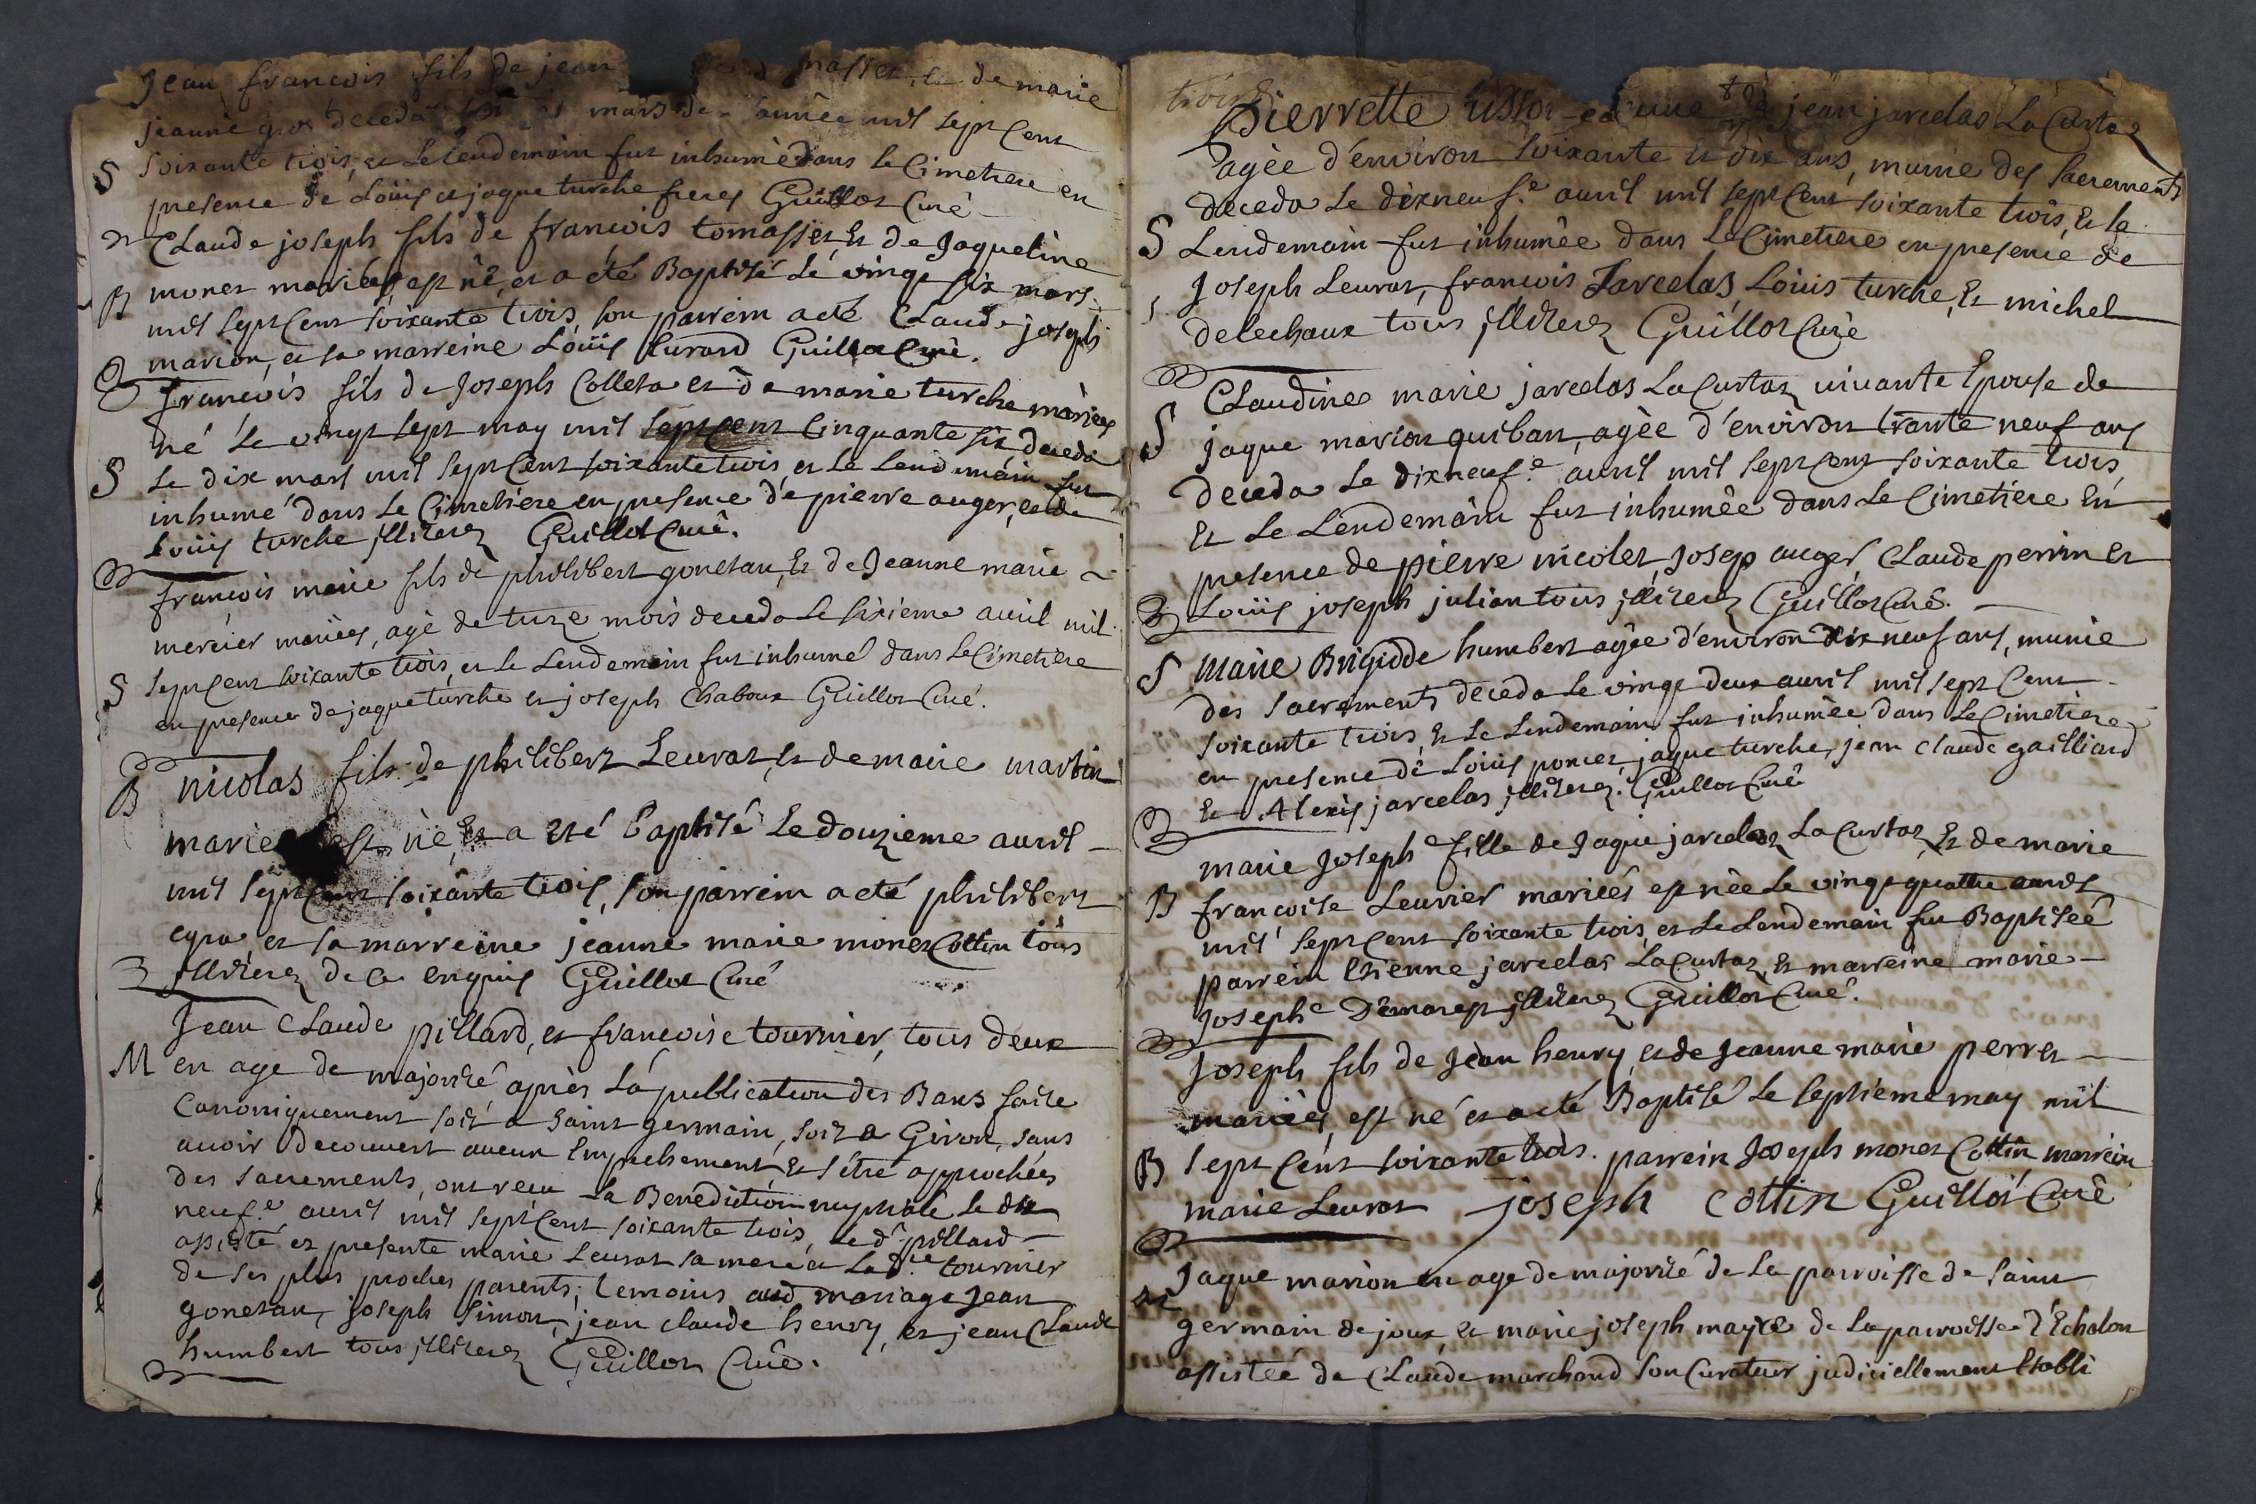 Jean francois fils de jean et de marie
jeanne gros deceda mars de l'année mil sept cent
S soixante trois, et le lendemain fut inhumé dans le Cimetiere en
presence de Loüis et jaque turche freres Guillot Curé
Claude joseph fils de francois tomasset et de Jaqueline
B monet mariés est né, et a été Baptisé le vingt six mars
mil sept Cent soixante trois, son parrein a été Claude joseph
marion, et sa marreine Loüis Guillot Curé.
francois fils de Joseph Colleta et de marie turche mariés
né le vingt sept may mil sept Cent Cinquante six deceda
S le dix mars mil sept Cent soixante trois, et le lendemain fut
inhumé dans le Cimetiere en presence de pierre auger, et de
Loüis turche illiterez Guillot Curé.
francois marie fils de philibert gonetan, et de Jeanne marie
mercier mariés, agé de mois deceda le sixieme avril mil
S sept Cent soixante trois, et le lendemain fut inhumé dans le Cimetiere
en presence de jaque turche et joseph Chaboux Guillot Curé.
B nicolas fils de philibert Levrat, et de marie martin
mariés est né, et a été baptisé le douzieme avril
mil sept Cent soixante trois, son parrein a été philibert
et sa marreine jeanne marie monet Cottin tous
illiterez de ce enquis Guillot Curé
Jean Claude pillard, et francoise tournier, tous deux
M en age de majorité, après la publication des Bans faite
Canoniquement soit a saint germain, soit a Giron, sans
avoir decouvert aucun Empechement, et s'être approchés
des sacrements, ont reçu la Benediction nuptiale le dix
neuf.e avril mil sept Cent soixante trois, le d.t pillard
assisté et presente marie Levrat sa mere et la d.te tournier
de ses plus proches parents; temoins aud mariage Jean
gonetan, joseph Simon, jean claude henry, et jean Claude
humbert tous illiterez Guillot Curé.
Pierrette jean jarcelas La Curtaz
agée d'environ soixante et dix ans, munie des sacrements
deceda le dixneuf.e avril mil sept Cent soixante trois, et le
S Lendemain fut inhumée dans le Cimetiere en presence de
Joseph Levrat, francois Jarcelas, Loüis turche, et michel
delechaux tous illiterez Guillot Curé
Claudine marie jarcelas La Curtaz vivante Epouse de
S jaque marion quiban, agée d'environ trante neuf ans
deceda le dixneuf.e avril mil sept cent soixante trois
Et le Lendemain fut inhumée dans le Cimetiere En
presence de pierre nicolet, Josep auger, Claude perrin et
Loüis joseph julian tous illiterez Guillot Curé.
S Marie Brigidde humbert agée d'environ dix neuf ans, munie
des sacrements deceda le vingt deux avril mil sept Cent
soixante trois, et le lendemain fut inhumée dans le Cimetiere
en presence de Loüis poncet, jaque turche, jean claude gailliard
Et Alexis jarcelas illiterez. Guillot Curé
marie Josephe fille de Jaque jarcelas La Curtaz, Et de marie
B francoise Leuvier mariés est née le vingt quattre avril
mil sept cent soixante trois, et le Lendemain fut Baptiseé
parrein Etienne jarcelas La Curtaz, Et marreine marie
Josephe Démarest illiterez Guillot Curé.
Joseph fils de Jean henry, et de Jeanne marie perret
mariés, est né et a été Baptisé le septieme may mil
B sept Cent soixante trois. parrein Joseph monet Cottin, marrein
marie Levrat joseph cottin Guillot Curé
M Jaque marion en age de majorité de la parroisse de saint
germain de joux, et marie joseph de la parroisse d'Echalon
assistée de Claude marchand son Curateur judiciellement Etabli